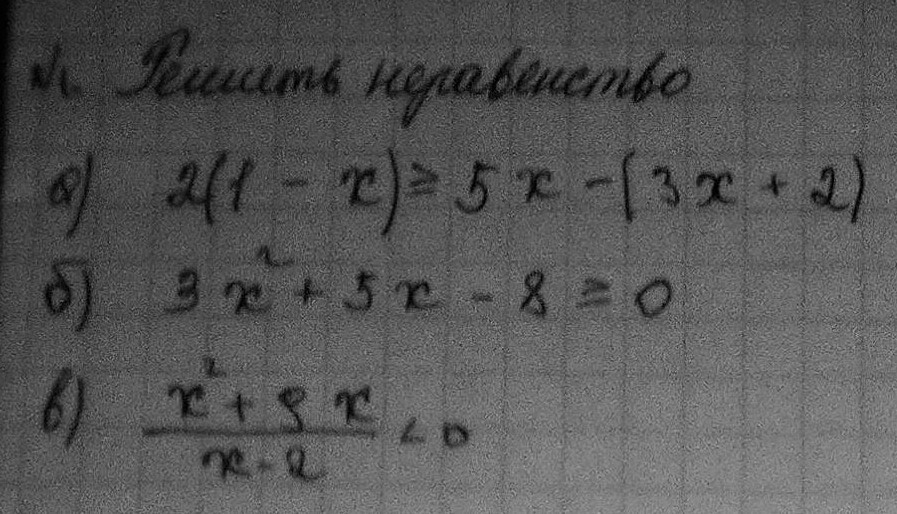 №1. Решить неравенство
а) 2(1 - x) ≥ 5x - (3x + 2)
б) 3x² + 5x - 8 ≥ 0
в) (x² + 9x)/(x - 2) < 0